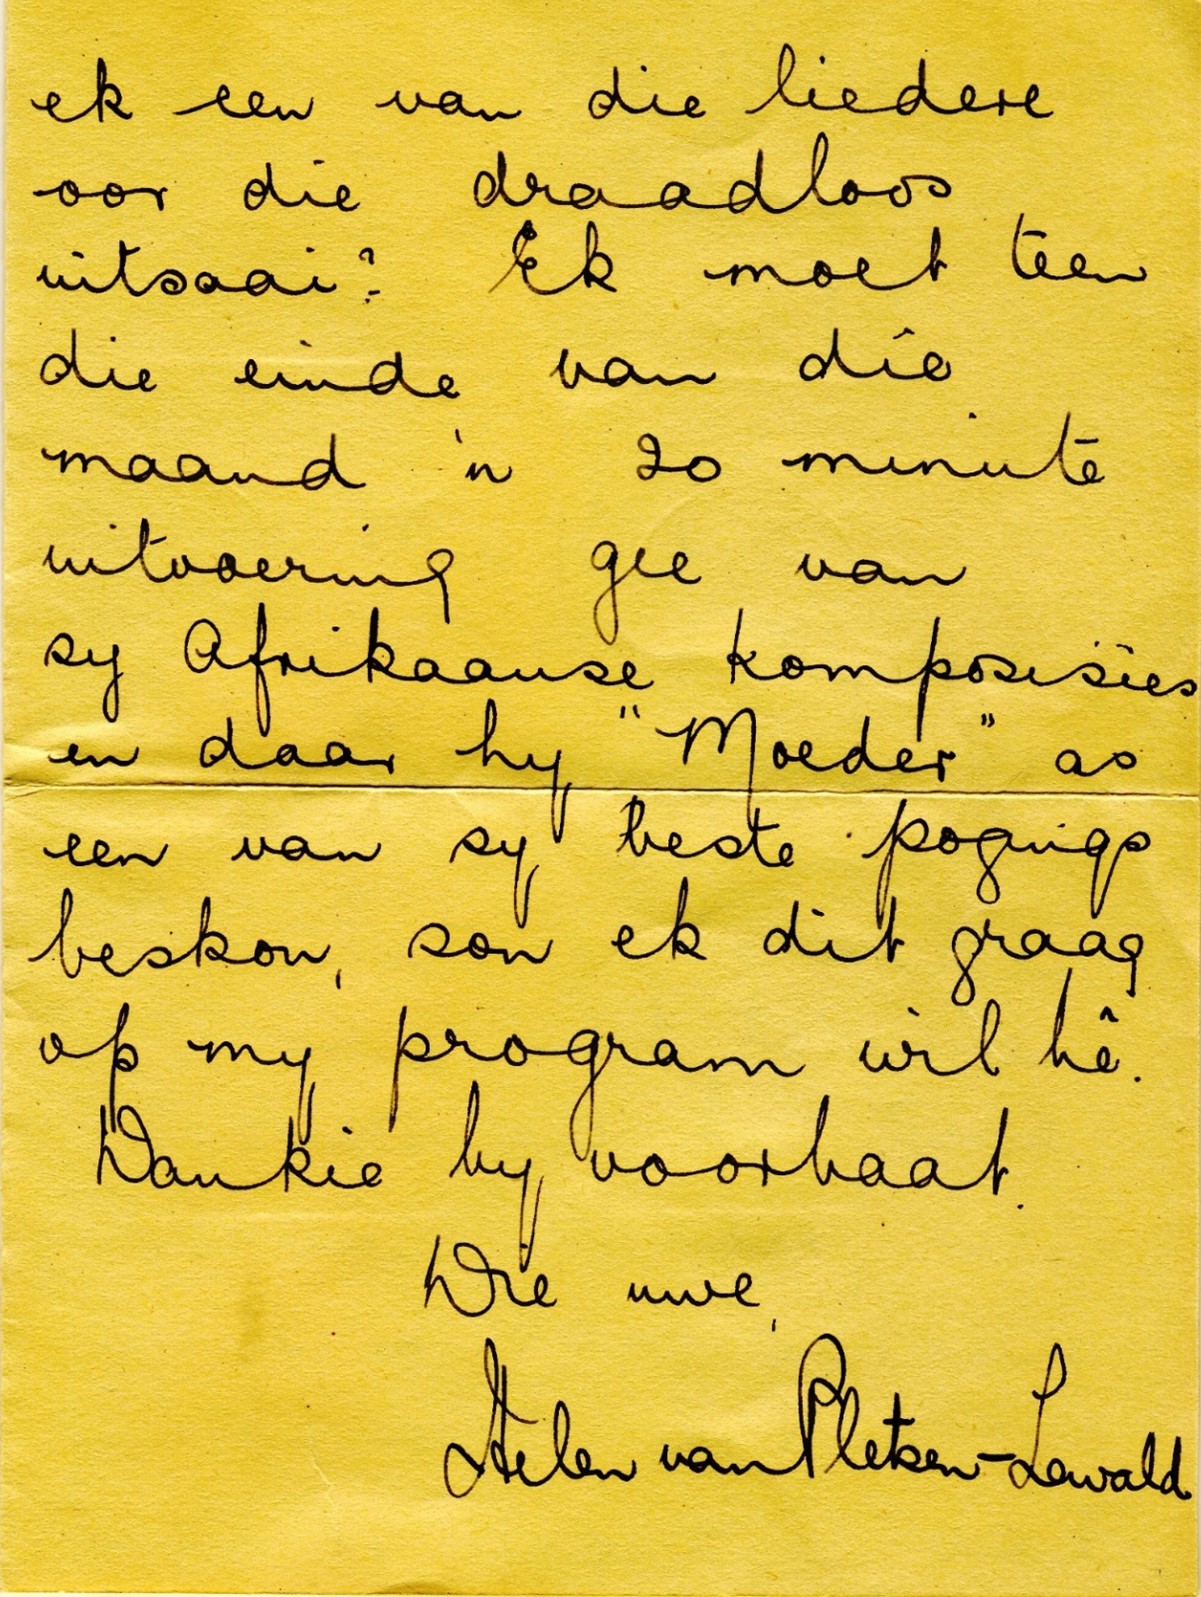 ek een van die liedere
oor die draadloos
uitsaai? Ek moet teen
die einde van díe
maand 'n 20 minute
uitvoering gee van
sy Afrikaanse komposisies
en daar hy "Moeder" as
een van sy beste pogings
beskou, sou ek dit graag
op my program wil hê.
Dankie by voorbaat.
Die uwe,
Helen van Pletsen-Lewald